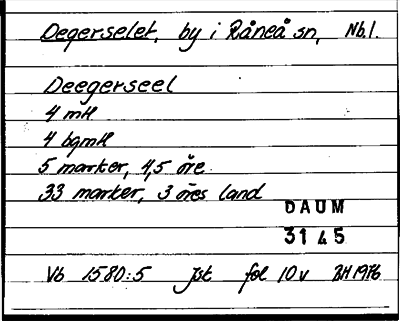 Degerselet, by i Råneå sn, Nb.l.
Deegerseel
4 mtl
4 bgmtl
5 marker, 4,5 öre
33 marker, 3 öres land
DAUM
3145
Vb 1580:5 Jst fol 10 v BH 1976